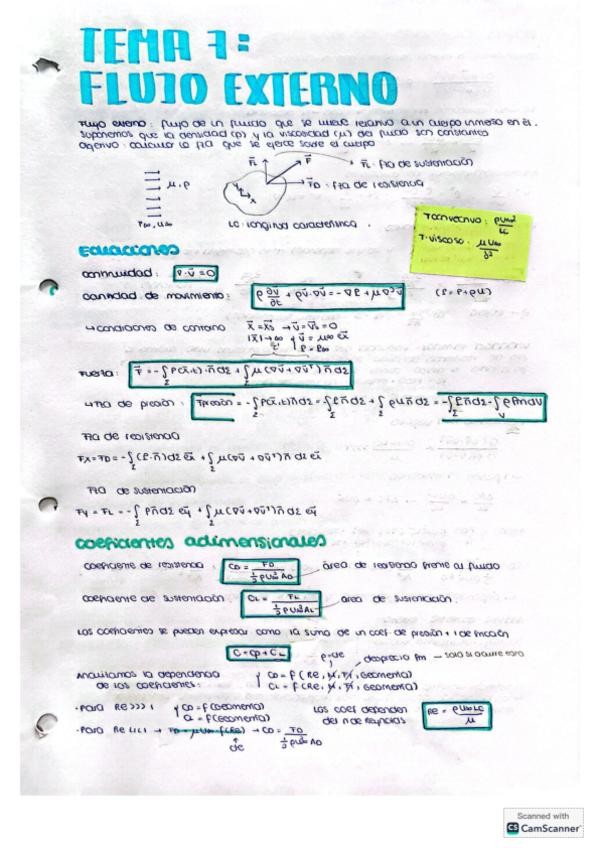 TEMA 7:
FLUJO EXTERNO
Flujo externo: flujo de un fluido que se mueve relativo a un cuerpo inmerso en él.
Suponemos que la densidad (ρ) y la viscosidad (μ) del fluido son constantes
Objetivo: calcular la fza que se ejerce sobre el cuerpo
FL: fza de sustentación
FD: fza de resistencia
μ, ρ
P∞, u∞
Lc: longitud característica.
T convectivo: ρU∞²/Lc
T. viscoso: μU∞/δ²
Ecuaciones
continuidad: ∇·v̄=0
cantidad de movimiento: ρ ∂v̄/∂t + ρv̄·∇v̄ = -∇P + μ∇²v̄
(P = P+ρU)
↳ condiciones de contorno
x̄ = x̄s → v̄ = v̄s = 0
|x̄| → ∞ v̄ = u∞ ēx
P = P∞
Fuerza:
↳ Fza de presión:
Fza de resistencia
Fx = FD = -∫(P·n̄)dΣ ēx + ∫μ(∇v̄ + ∇v̄ᵀ)n̄ dΣ ēx
Fza de sustentación
Fy = FL = -∫Pn̄dΣ ēy + ∫μ(∇v̄ + ∇v̄ᵀ)n̄ dΣ ēy
Coeficientes adimensionales
coeficiente de resistencia: CD = FD / ½ρU∞²AD → área de resistencia frente al fluido
coeficiente de sustentación: CL = FL / ½ρU∞²AL → área de sustentación.
Los coeficientes se pueden expresar como la suma de un coef. de presión + 1 de fricción
Analizamos la dependencia
de los coeficientes:
· Para Re >>> 1 CD = f(Geometría)
CL = f(Geometría)
Los coef dependen
del n de Reynolds
Re = ρU∞Lc/μ
· Para Re <<< 1 → CD = FD / ½ρU∞²AD
Scanned with
CS CamScanner